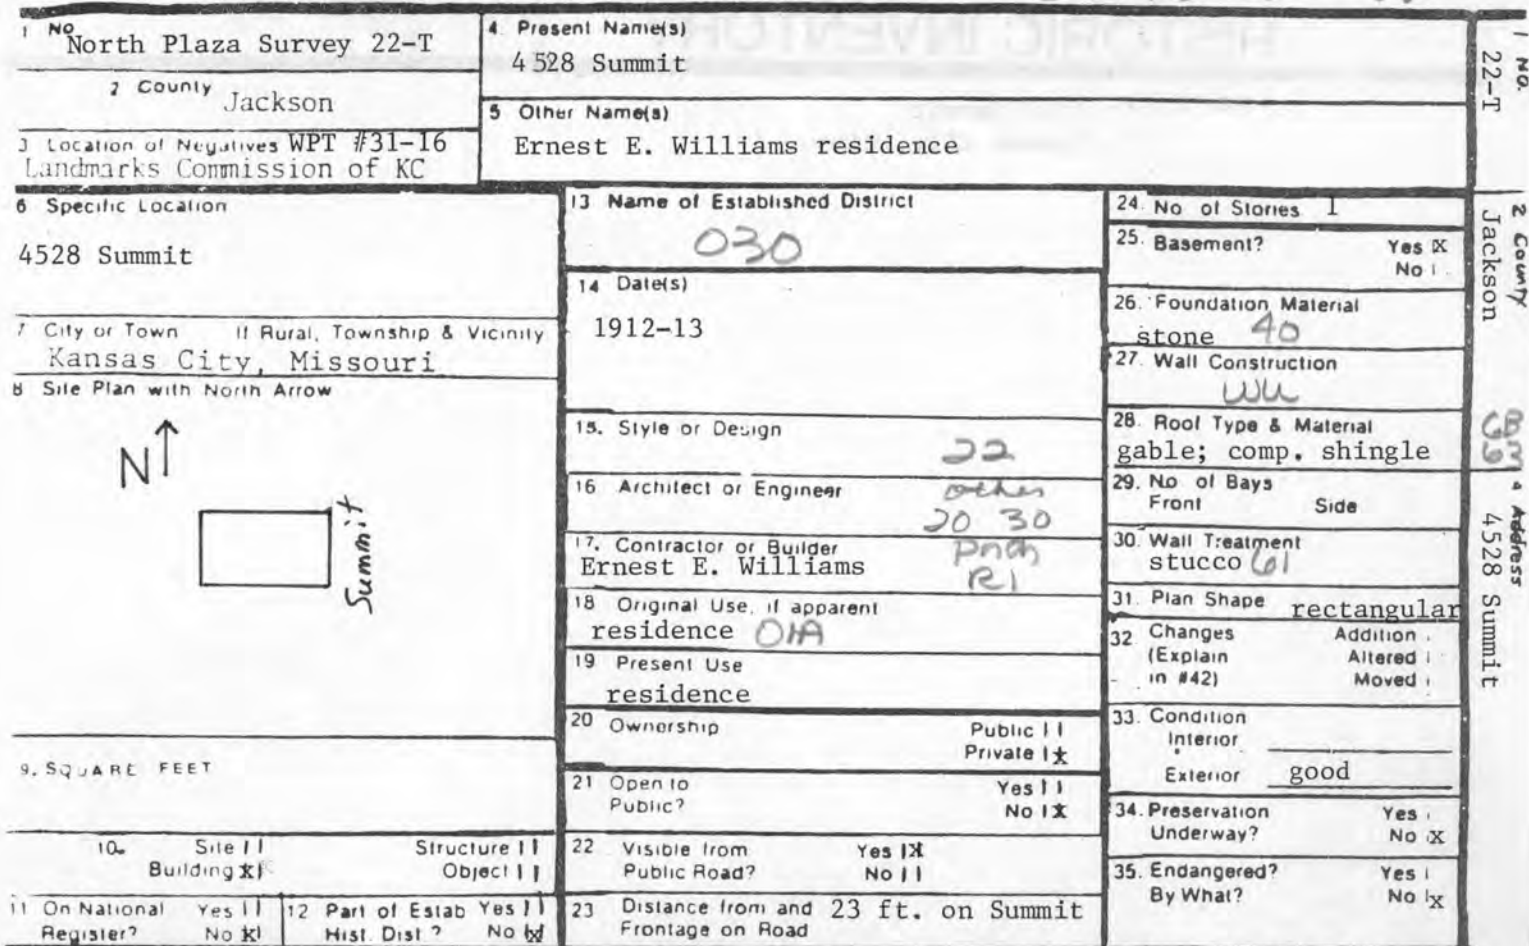 1 No. North Plaza Survey 22-T
2 County Jackson
3 Location of Negatives WPT #31-16
Landmarks Commission of KC
4. Present Name(s)
4528 Summit
5 Other Name(s)
Ernest E. Williams residence
6 Specific Location
4528 Summit
7 City or Town If Rural, Township & Vicinity
Kansas City, Missouri
8 Site Plan with North Arrow
N
Summit
9. SQUARE FEET
10. Site
Structure
Building X
Object
11 On National Register? Yes No X
12 Part of Estab Hist. Dist.? Yes No X
13 Name of Established District
030
14 Date(s)
1912-13
15. Style or Design
22
16 Architect or Engineer
other
20 30
17. Contractor or Builder
Ernest E. Williams
R1
18 Original Use, if apparent
residence 01A
19 Present Use
residence
20 Ownership
Public
Private X
21 Open to Public?
Yes
No X
22 Visible from Public Road?
Yes X
No
23 Distance from and Frontage on Road
23 ft. on Summit
24. No of Stories 1
25. Basement? Yes X
No
26. Foundation Material
stone 40
27. Wall Construction
WU
28. Roof Type & Material
gable; comp. shingle
29. No of Bays
Front Side
30. Wall Treatment
stucco 61
31. Plan Shape rectangular
32 Changes (Explain in #42)
Addition
Altered
Moved
33. Condition
Interior
Exterior good
34. Preservation Underway? Yes
No X
35. Endangered? Yes
By What? No X
1 No.
22-T
2 County
Jackson
4 Address
4528 Summit